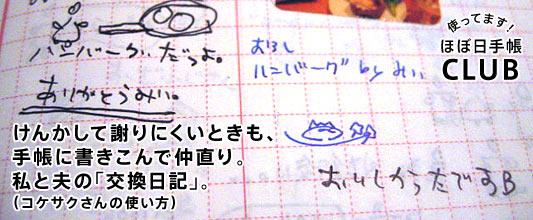 使ってます!
ほぼ日手帳
CLUB
ハンバーグだってよ。
ありがとうみい。
おろし
ハンバーグ by みい
おいしかったですB
けんかして謝りにくいときも、
手帳に書きこんで仲直り。
私と夫の「交換日記」。
(コケサクさんの使い方)